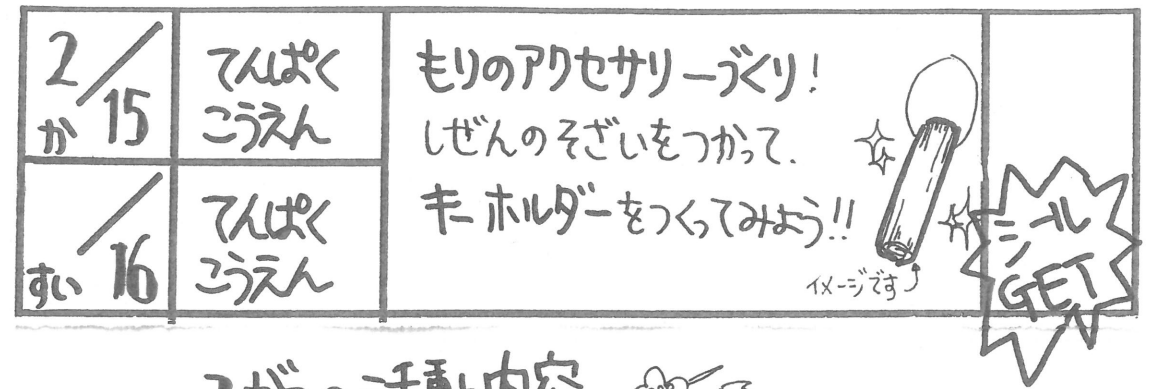 2/15
か
てんぱく
こうえん
もりのアクセサリーづくり!
しぜんのそざいをつかって、
キーホルダーをつくってみよう!!
イメージです
/16
すい
てんぱく
こうえん
シール
GET